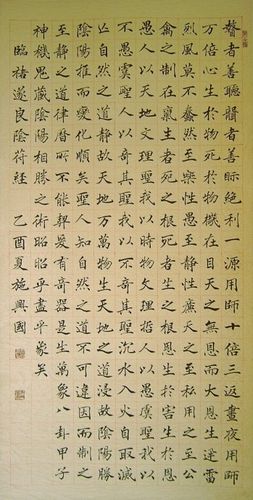 瞽者善聽聾者善眎絕利一源用師十倍三返晝夜用師
萬倍心生於物死於物機在目天之無恩而大恩生迅雷
烈風莫不蠢然至樂性愚至靜性廉天之至私用之至公
禽之制在氣生者死之根死者生之根恩生於害生於恩
愚人以天地文理聖我以時萬物文理哲人以愚虞聖我以
不愚虞聖人以奇其聖我以不奇其聖沉水入火自取滅
亡自然之道靜故天地萬物生天地之道浸故陰陽勝
陰陽推而變化順矣聖人知自然之道不可違因而制之
至靜之道律曆所不能契爰有奇器是生萬象八卦甲子
神機鬼藏陰陽相勝之術昭昭乎盡乎象矣
臨褚遂良陰符經 乙酉夏施興國